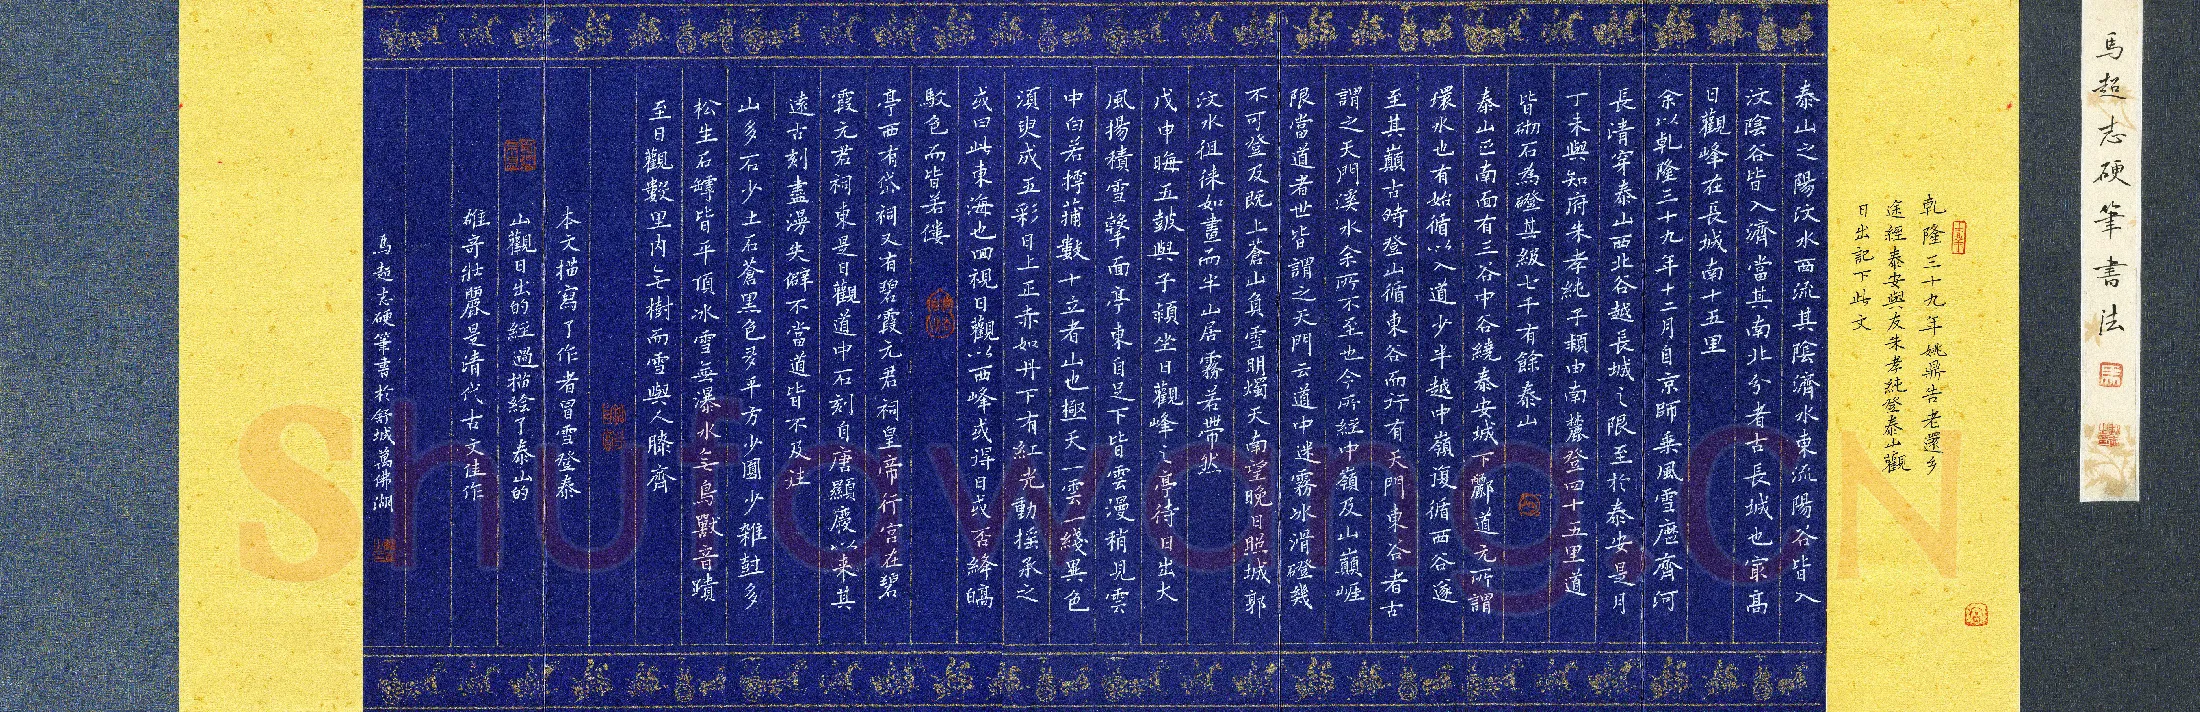 馬超志硬筆書法
乾隆三十九年姚鼐告老還乡
途經泰安與友朱孝純登泰山觀
日出記下此文
泰山之陽汶水西流其陰濟水東流陽谷皆入
汶陰谷皆入濟當其南北分者古長城也最高
日觀峰在長城南十五里
余以乾隆三十九年十二月自京師乘風雪歷齊河
長清穿泰山西北谷越長城之限至於泰安是月
丁未與知府朱孝純子穎由南麓登四十五里道
皆砌石為磴其級七千有餘泰山
泰山正南面有三谷中谷繞泰安城下酈道元所謂
環水也有始循以入道少半越中嶺復循西谷遂
至其巔古時登山循東谷而行有天門東谷者古
謂之天門溪水余所不至也今所經中嶺及山巔崖
限當道者世皆謂之天門云道中迷霧冰滑磴幾
不可登及既上蒼山負雪明燭天南望晚日照城郭
汶水徂徠如畫而半山居霧若帶然
戊申晦五鼓與子潁坐日觀峰之亭待日出大
風揚積雪擊面亭東自足下皆雲漫稍見雲
中白若摴蒱數十立者山也極天一雲一綫異色
須臾成五彩日上正赤如丹下有紅光動搖承之
或曰此東海也回視日觀以西峰或得日或否絳皜
駁色而皆若僂
亭西有岱祠又有碧霞元君祠皇帝行宮在碧
霞元君祠東是日觀道中石刻自唐顯慶以来其
遠古刻盡漫失僻不當道皆不及往
山多石少土石蒼黑色多平方少圓少雜封多
松生石罅皆平頂冰雪無瀑水无鳥獸音蹟
至日觀數里内无樹而雪與人膝齊
本文描寫了作者冒雪登泰
山觀日出的經過描绘了泰山的
雄奇壯麗是清代古文佳作
馬超志硬筆書於舒城萬佛湖
Shufawang.CN